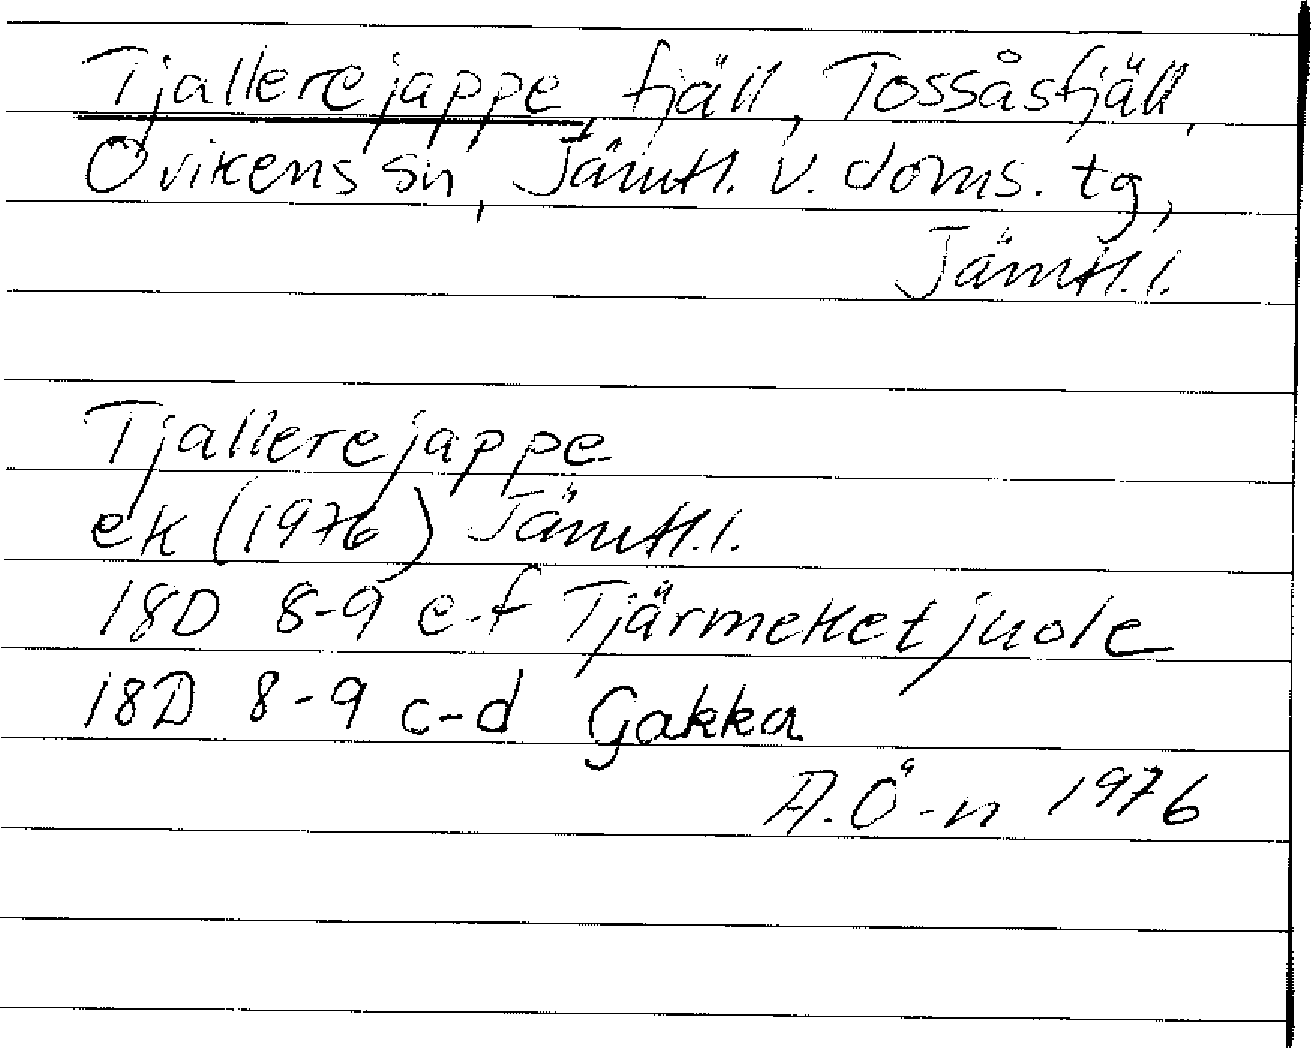 Tjallerejappe, fjäll, Tossåsfjäll,
Ovikens sn, Jämtl. v. doms. tg,
Jämtl. l.
Tjallerejappe
ek (1976) Jämtl. l.
18D 8-9 e-f Tjärmeketjuole
18D 8-9 c-d Gakka
A. Ö-n 1976